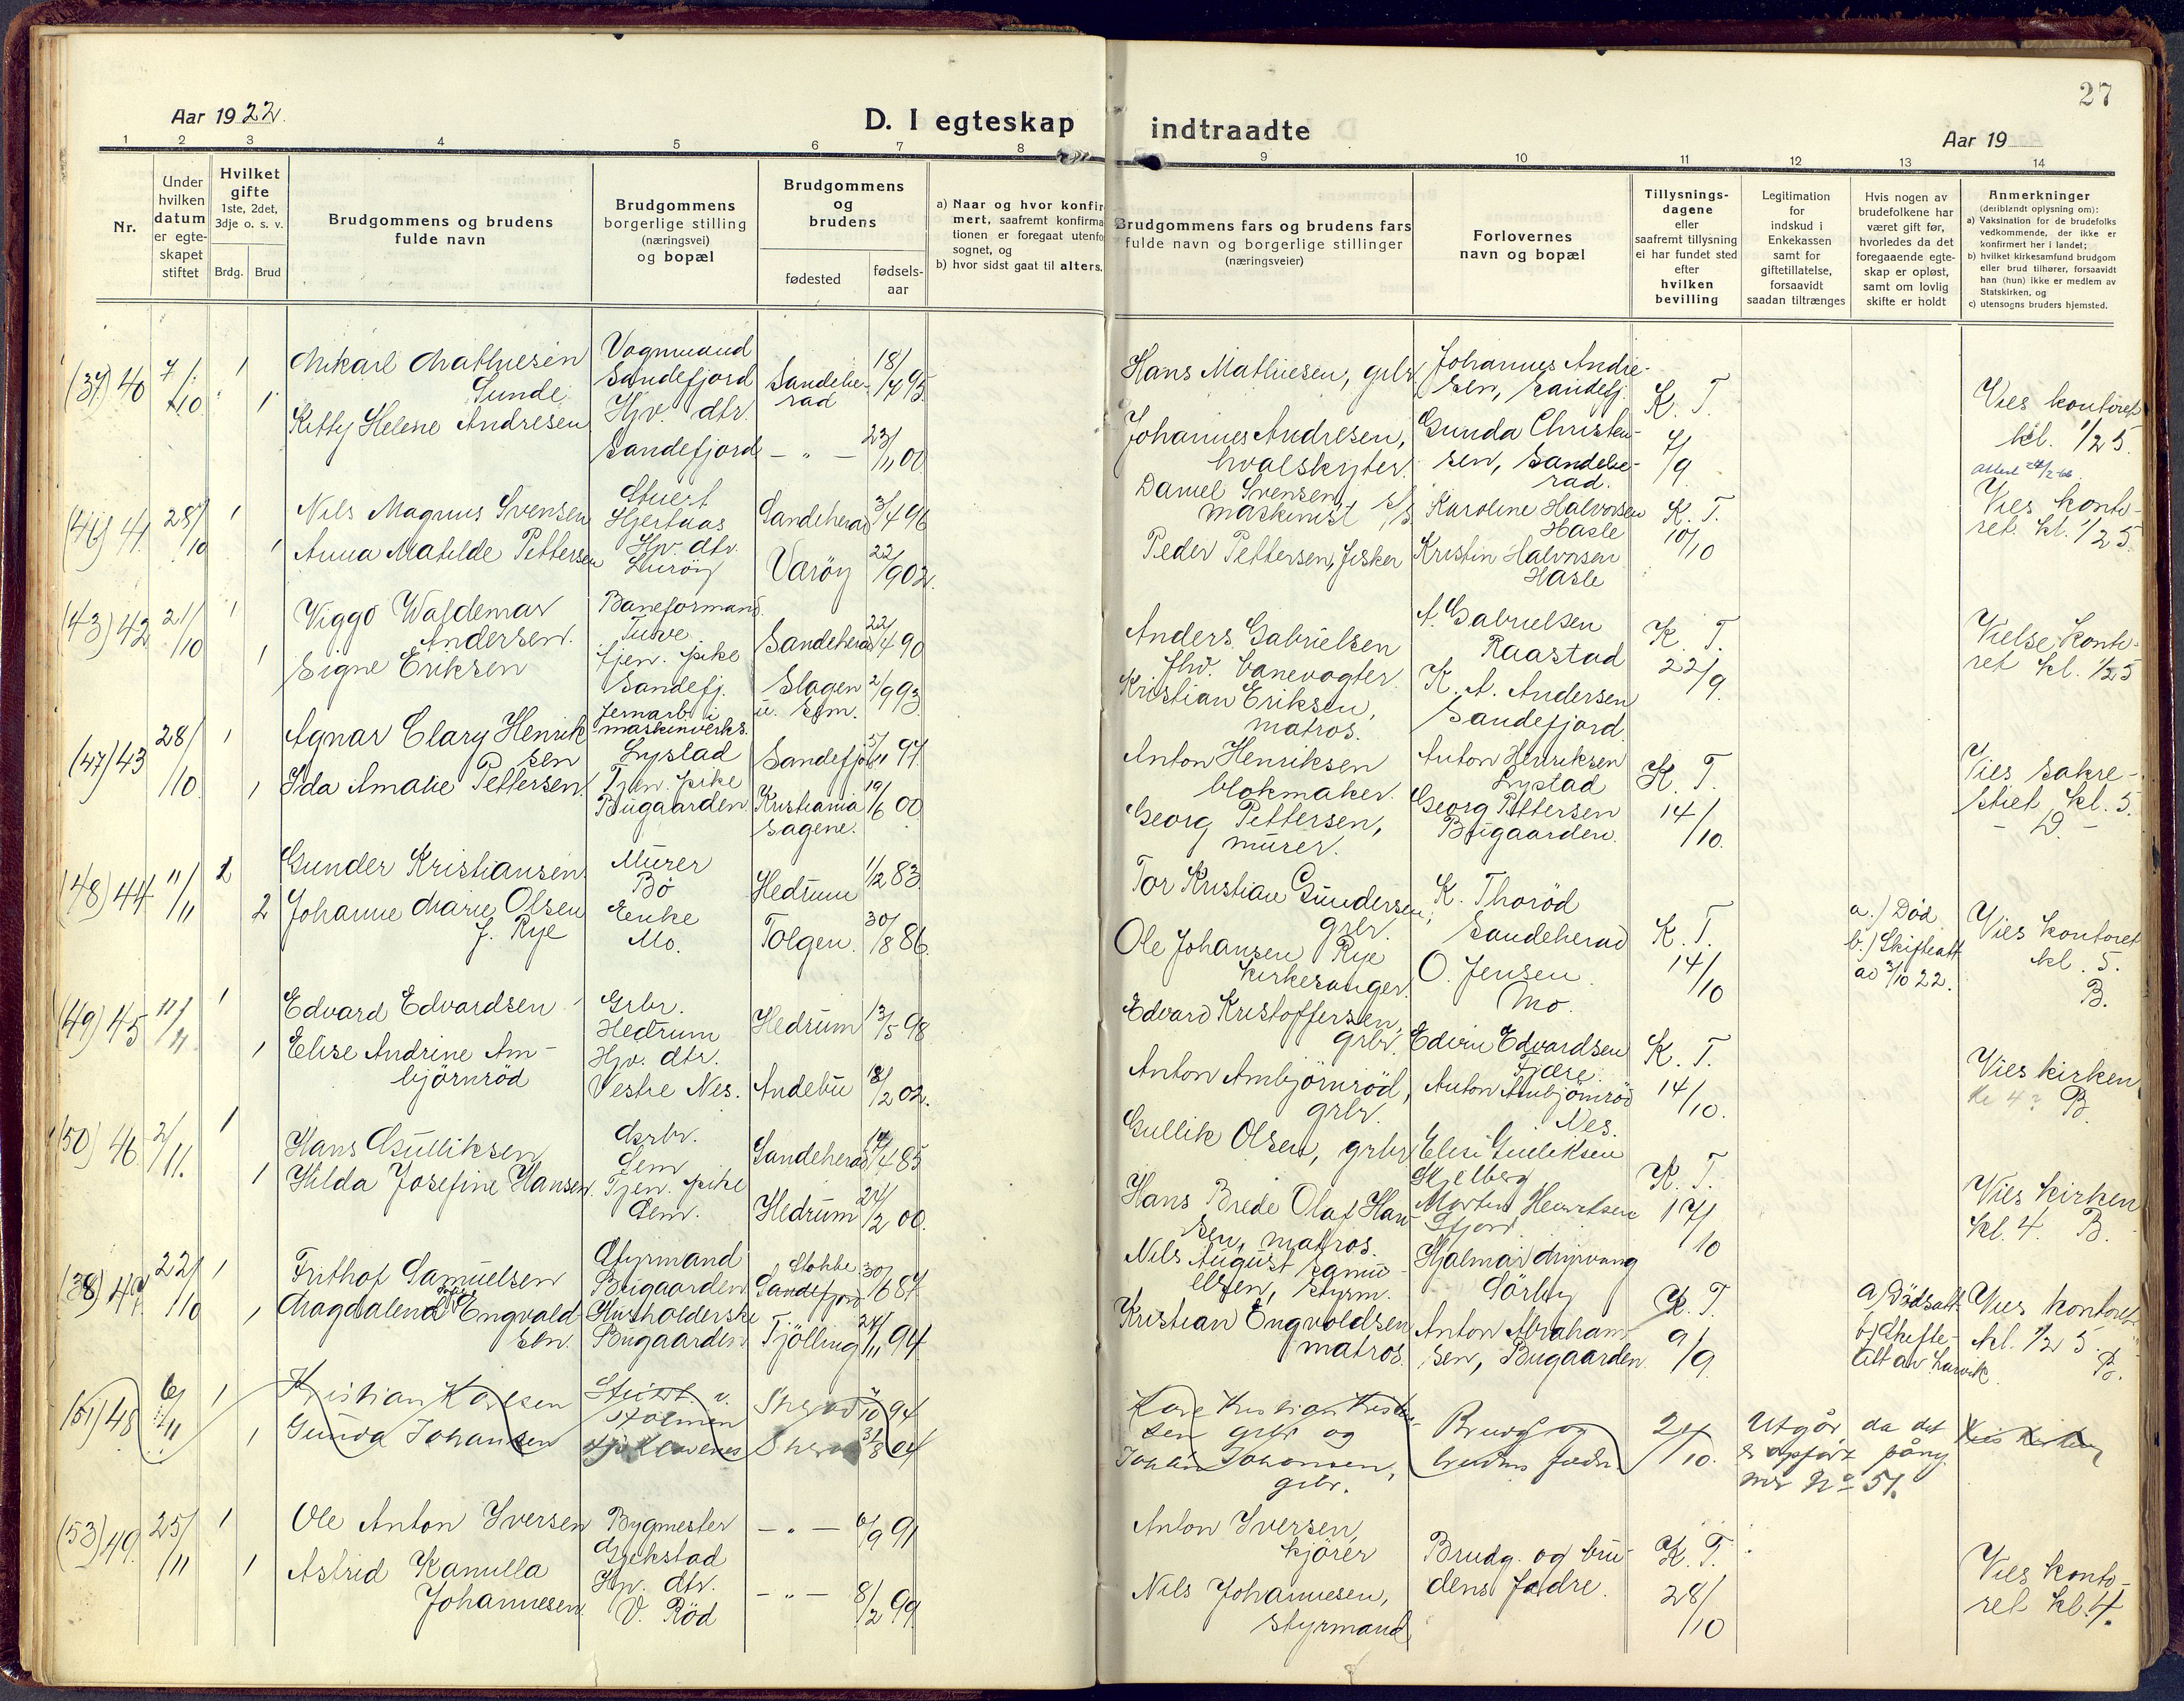 27
Aar 1922.
D. I egteskap
indtraadte
Aar 19
1 2 3 4 5 6 7 8 9 10 11 12 13 14
Nr.
Under
hvilken
datum
er egte-
skapet
stiftet
Hvilket
gifte
1ste, 2det,
3dje o. s. v.
Brdg. Brud
Brudgommens og brudens
fulde navn
Brudgommens
borgerlige stilling
(næringsvei)
og bopæl
Brudgommens
og
brudens
fødested
fødsels-
aar
a) Naar og hvor konfir
mert, saafremt konfirma
tionen er foregaat utenfo
sognet, og
b) hvor sidst gaat til alters.
Brudgommens fars og brudens fars
fulde navn og borgerlige stillinger
(næringsveier)
Forlovernes
navn og bopæl
Tillysnings-
dagene
eller
saafremt tillysning
ei har fundet sted
efter
hvilken
bevilling
Legitimation
for
indskud i
Enkekassen
samt for
giftetillatelse,
forsaavidt
saadan tiltrænges
Hvis nogen av
brudefolkene har
været gift før,
hvorledes da det
foregaaende egte-
skap er opløst,
samt om lovlig
skifte er holdt
Anmerkninger
(deriblandt oplysning om):
a) Vaksination for de brudefolks
vedkommende, der ikke er
konfirmert her i landet;
b) hvilket kirkesamfund brudgom
eller brud tilhører, forsaavidt
han (hun) ikke er medlem av
Statskirken, og
c) utensogns bruders hjemsted.
(37) 40
7/10
1
1
Mikael Mathiesen
Sunde
Kitty Helene Andresen
Vognmand
Sandefjord
Hjv. dtr.
Sandefjord
Sandehe-
rad
— " —
18/4 95
23/11 00
Hans Mathiesen, grbr
Johannes Andresen,
hvalskyter
Johannes Andre-
sen, Sandefj.
Gunda Christen-
sen, Sandehe-
rad.
K. T.
7/9
Vies kontoret
kl. 1/2 5.
(46) 41
28/10
1
1
Nils Magnus Svensen
Anna Matilde Pettersen
Stuert
Hjertaas
Hjv. dtr.
Lurøy
Sandeherad
Værøy
3/4 96
22/9 02.
Daniel Svensen,
maskinist
Peder Pettersen, fisker
Karoline Halvorsen
Hasle
Kristin Halvorsen
Hasle
K. T.
10/10
Vies konto-
ret. kl. 1/2 5.
(43) 42
21/10
1
1
Viggo Waldemar
Andersen.
Signe Eriksen
Baneformand.
Tuve
Tjen. pike
Sandefj.
Sandeherad
Slagen
22/4 90
2/9 93
Anders Gabrielsen
fhv. banevogter.
Kristian Eriksen,
matros.
A. Gabrielsen
Raastad
K. A. Andersen
Sandefjord
K. T.
22/9
Vielse konto-
ret kl. 1/2 5
(47) 43
28/10.
1
1
Agnar Clary Henrik
sen
Ida Amalie Pettersen
Jernarb. i
maskinverks.
Lystad
Tjen. pike
Bugaarden
Sandefjord
Kristiania
Sagene.
5/11 97
19/6 00
Anton Henriksen
blokmaker.
Georg Pettersen,
murer.
Anton Henriksen
Lystad
Georg Pettersen
Bugaarden.
K. T.
14/10.
Vies sakre-
stiet kl. 5.
(48) 44
11/11
2
2
Gunder Kristiansen
Johanne Marie Olsen
f. Rye
Murer
Bø
Enke
Mo.
Hedrum
Tolgen.
1/12 83
30/8 86.
Tor Kristian Gundersen,
grbr.
Ole Johansen Rye
kirkesanger.
K. Thorød
Sandeherad
O. Jensen
Mo.
K. T.
14/10
a.) Død
b.) Skifteatt
av 3/10 22.
Vies kontoret
kl. 5.
B.
(49) 45
11/11.
1
1
Edvard Edvardsen
Elise Andrine Am-
bjørnrød
Grbr.
Hedrum
Hjv. dtr.
Vestre Nes.
Hedrum
Andebu
13/5 98
18/2 02.
Edvard Kristoffersen,
grbr.
Anton Ambjørnrød,
grbr.
Edvin Edvardsen
Anton Ambjørnrød
Nes.
K. T.
14/10.
Vies kirken
B.
(50) 46
2/11.
1
1
Hans Gulliksen
Hilda Josefine Hansen.
Grbr.
Gem
Tjen. pike
Gem.
Sandeherad
Hedrum
24/2 00.
Gullik Olsen, grbr
Hans Brede Olaf Han-
sen, matros.
Elise Gulliksen
Skjelberg
K. T.
17/10
Vies kirken
kl. 4. B.
(38) 47
22/10
1
1
Frithof Samuelsen
Magdalena Engvald
sen.
Styrmand
Bugaarden
Husholderske
Bugaarden
Stokke
Sandefjord
Tjølling
30/6 87
24/11 94
Nils August Samu-
elsen, styrm.
Kristian Engvoldsen
matros.
Hjalmar Myrvang
Sørby
Anton Abraham-
sen, Bugaarden.
K. T.
9/9
a) Dødsatt
b) Skifte-
att av Larvik
Vies kontoret
kl. 1/2 5.
B.
(51) 48
6/11
1
1
Kristian Karlsen
Gunda Johansen
94
31/8 04
sen grbr og
Johan Johansen,
grbr.
Brudg og
brudens fædre
24/10.
Utgår, da det
er opført påny
Nº 51.
Vies kirken
(53) 49.
25/11
1
1
Ole Anton Iversen
Astrid Kamilla
Johannesen.
Bygmester
Gjekstad
Hjv. dtr.
V. Rød
— " —
— " —
6/9 91
8/2 99
Anton Iversen,
kjører
Nils Johannesen,
styrmand
Brudg. og bru-
dens fadre.
K. T.
28/10
Vies konto-
ret kl. 4.